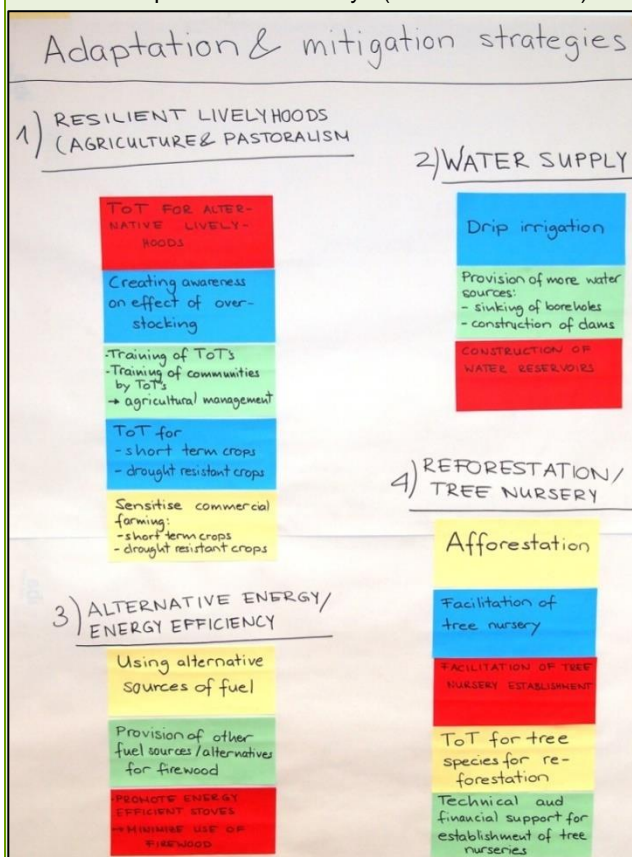 Adaptation & mitigation strategies
1) RESILIENT LIVELYHOODS
(AGRICULTURE & PASTORALISM
TOT FOR ALTER-
NATIVE LIVELY-
HOODS
Creating awareness
on effect of over-
stocking
-Training of ToT's
-Training of communities
by ToT's
→ agricultural management
ToT for
- short term crops
- drought resistant crops
Sensitise commercial
farming:
- short term crops
- drought resistant crops
2) WATER SUPPLY
Drip irrigation
Provision of more water
sources:
- sinking of boreholes
- construction of dams
CONSTRUCTION OF
WATER RESERVOIRS
3) ALTERNATIVE ENERGY/
ENERGY EFFICIENCY
Using alternative
sources of fuel
Provision of other
fuel sources/alternatives
for firewood
-PROMOTE ENERGY
EFFICIENT STOVES
→ MINIMISE USE OF
FIREWOOD
4) REFORESTATION/
TREE NURSERY
Afforestation
Facilitation of
tree nursery
FACILITATION OF TREE
NURSERY ESTABLISHMENT
ToT for tree
species for re-
forestation
Technical and
financial support for
establishment of tree
nurseries